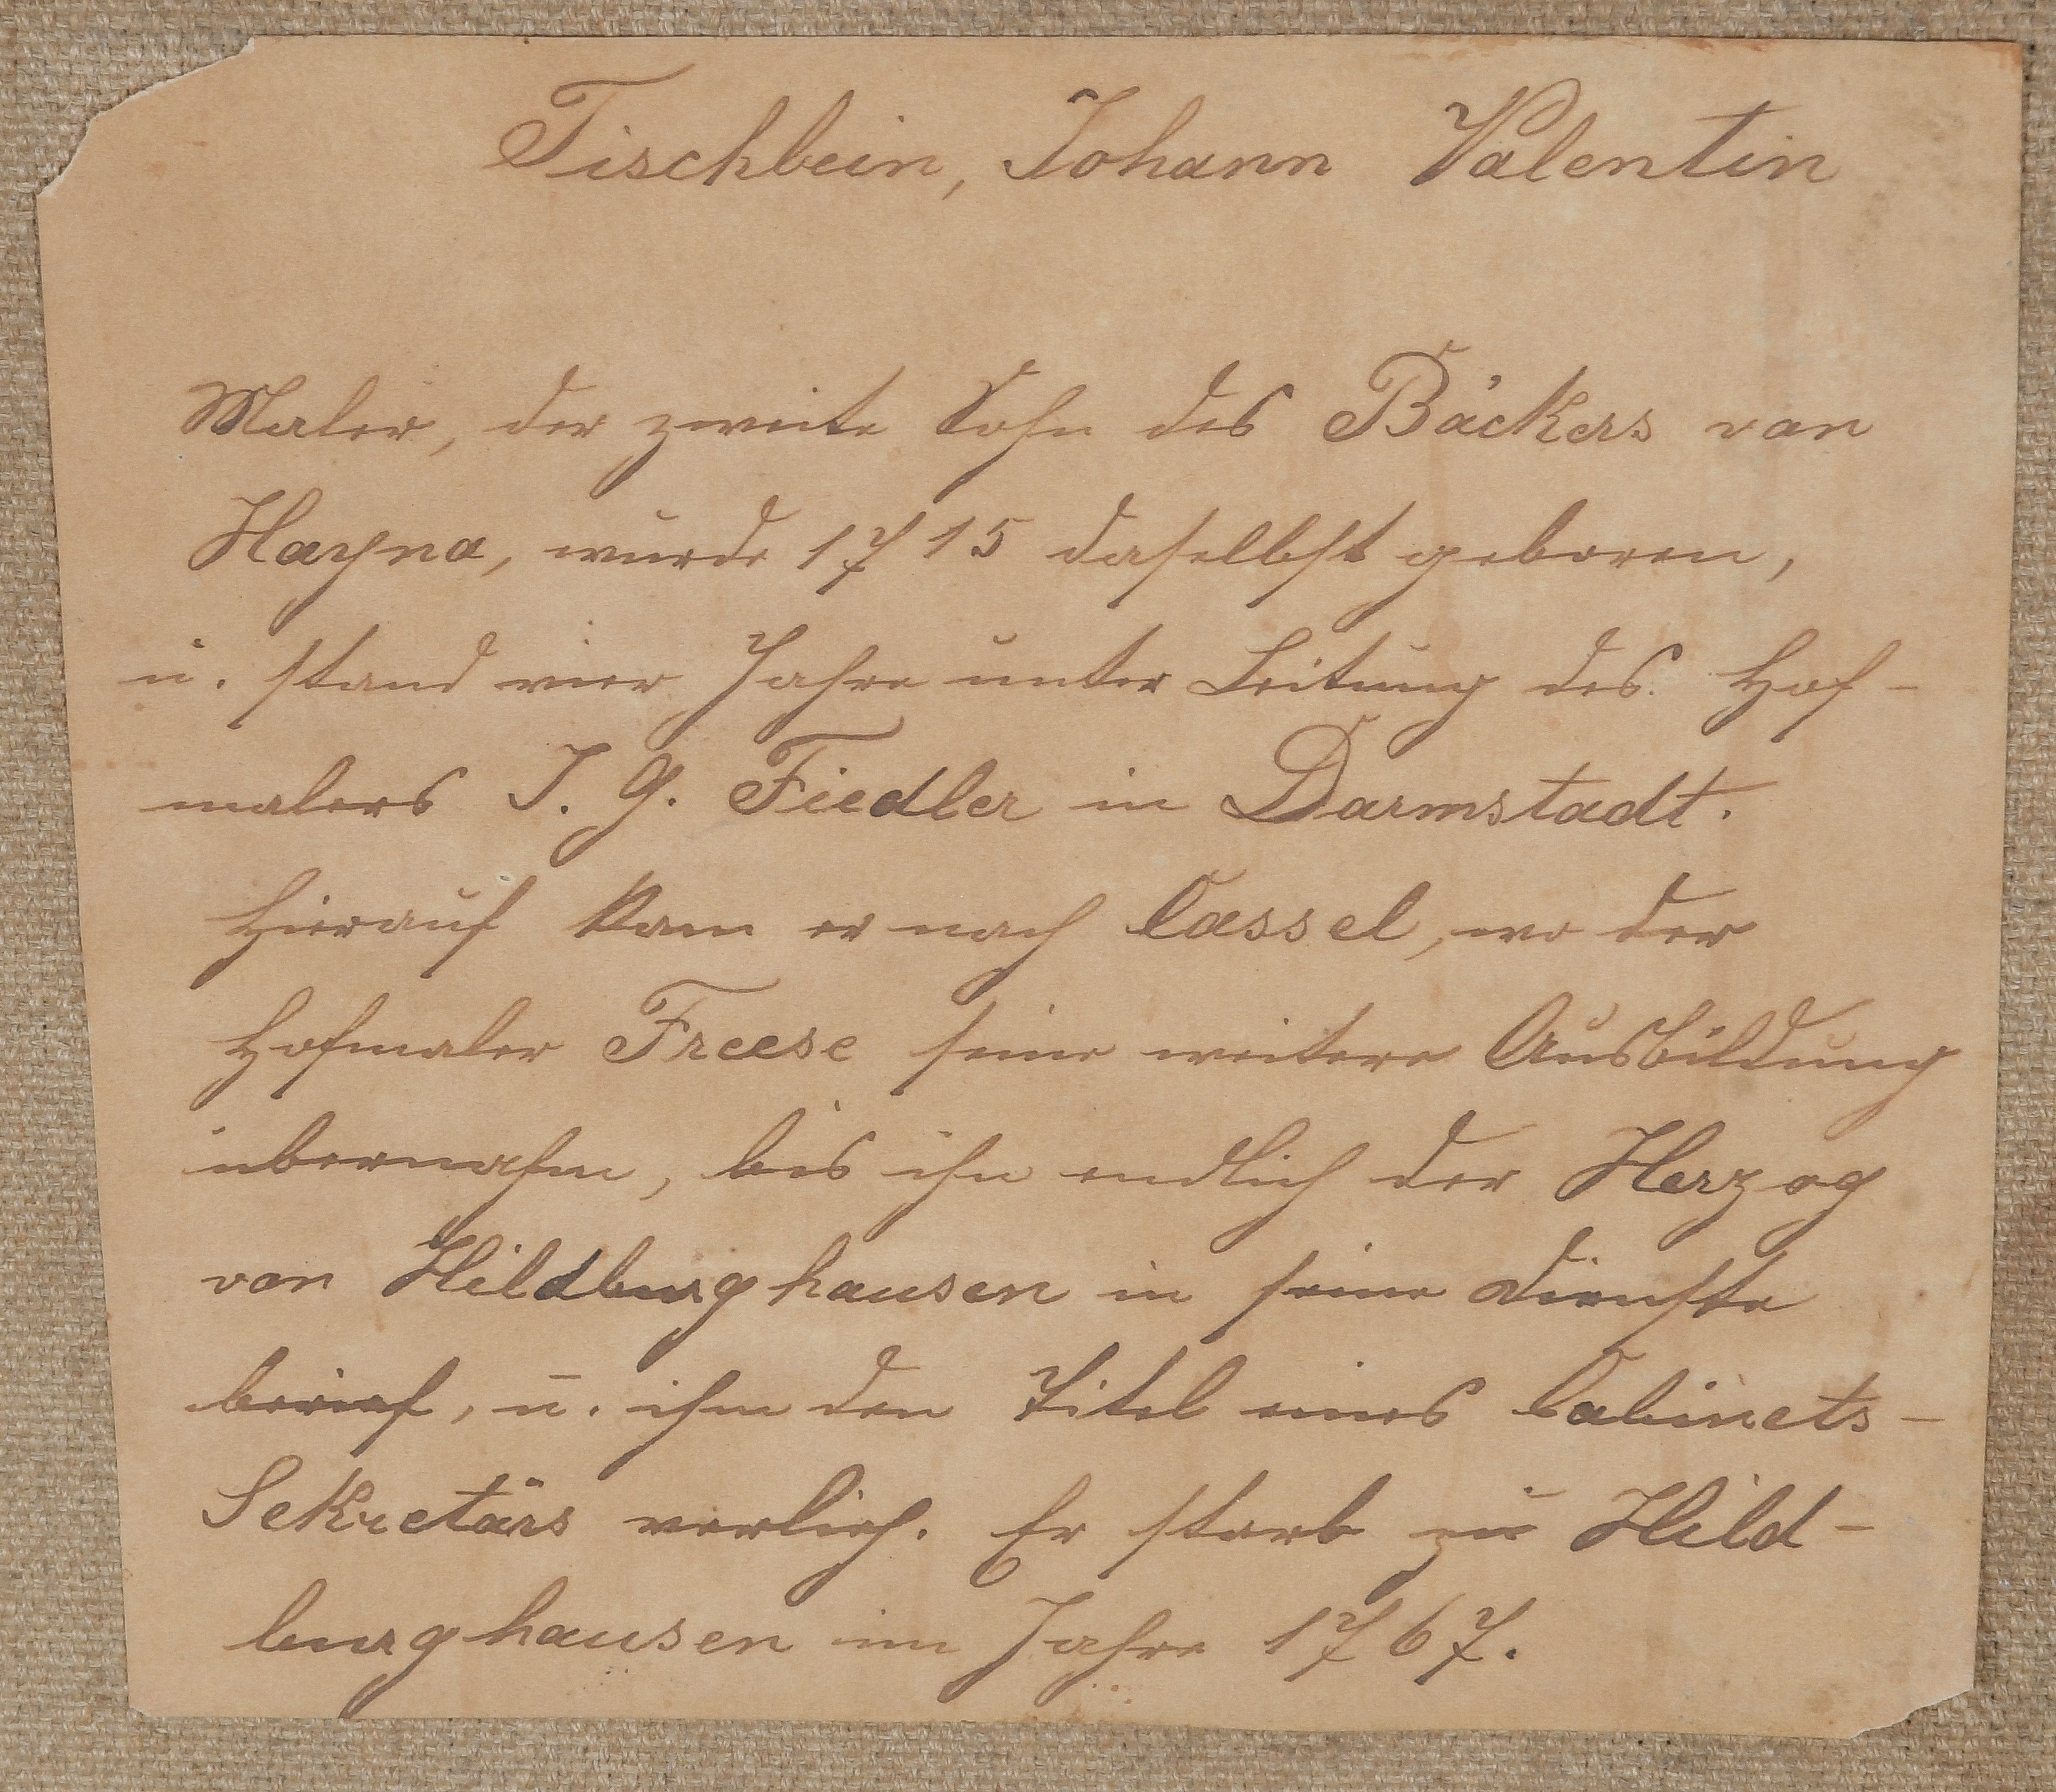 Tischbein, Johann Valentin
Maler, der zweite Sohn des Bäckers von
Hayna, wurde 1715 daselbst geboren,
u. stand vier Jahre unter Leitung des Hof-
malers J. G. Fiedler in Darmstadt.
Hierauf kam er nach Cassel, wo der
Hofmaler Freese seine weitere Ausbildung
übernahm, bis ihn endlich der Herzog
von Hildburghausen in seine Dienste
berief, u. ihm den Titel eines Cabinets-
Sekretärs verlieh. Er starb zu Hild-
burghausen im Jahre 1767.